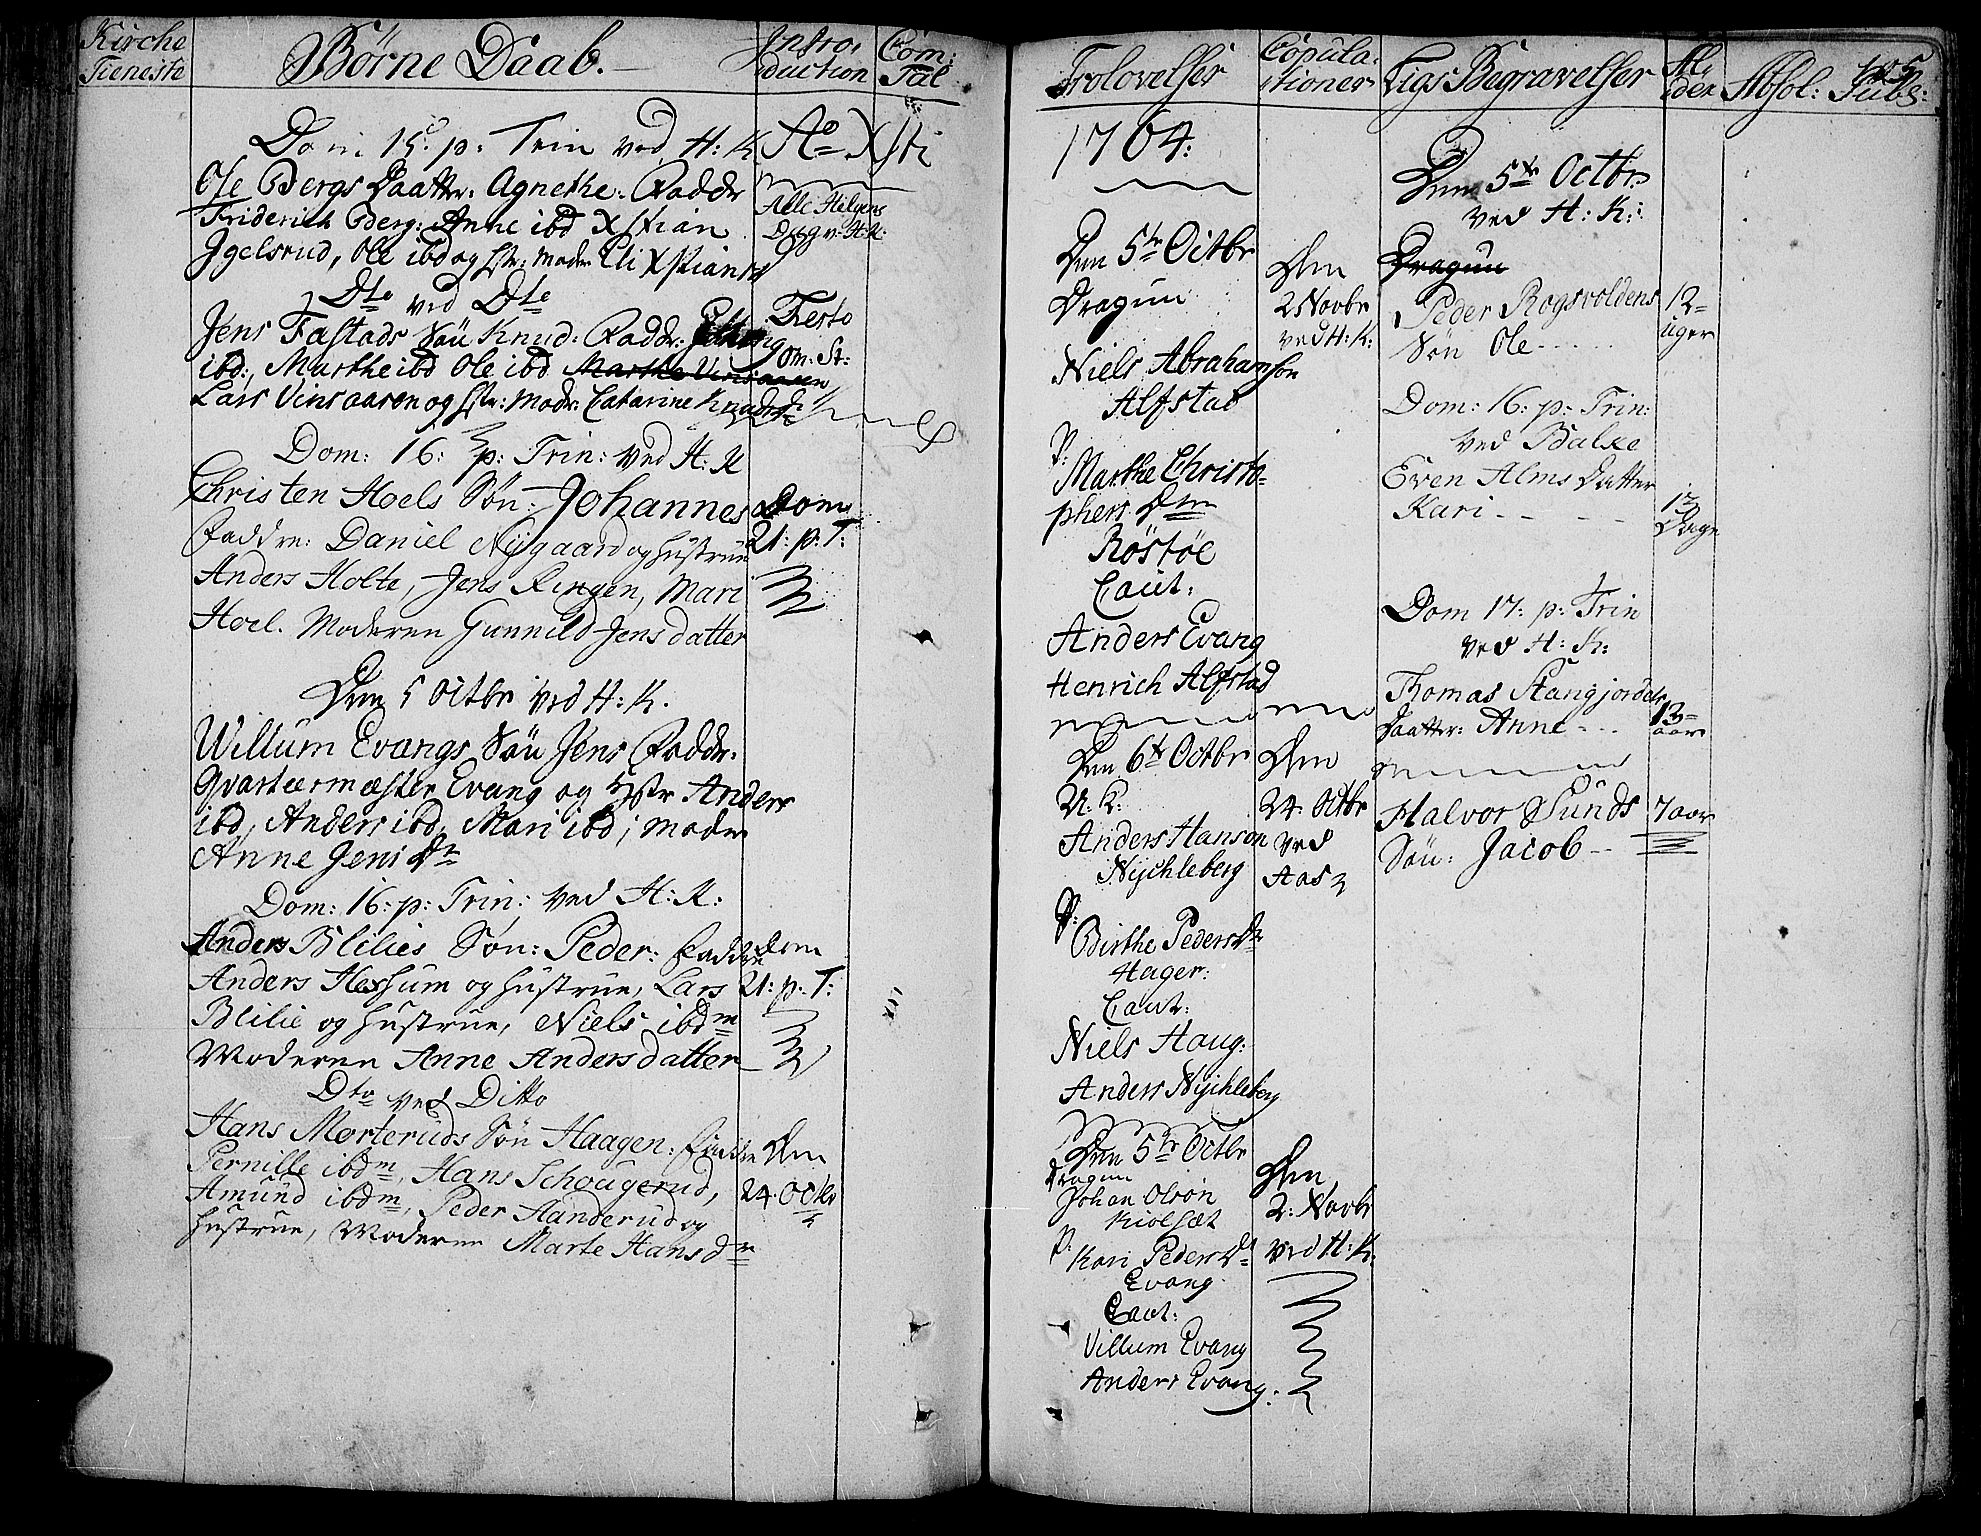 Kirche
Tieneste
Børne Daab.
Intro,
duction
Com:
Tal
Dom 15d. p. Trin ved H: K
Ao Xsti
Ole Bergs Daatter: Agnethe: Faddr
Friderich Berg: Anne ibd Xstian
Igelsrud, Ole ibd og hstr: modr Eli Xstiansd
Alle Helgens
Dag v: H: K:
Dto ved Dto
Jens Fastads Søn Knud: Faddr:
ibd:, Marthe ibd Ole ibd Marthe Vinsaaren
Lars Vinsaaren og hstr: modr: Catarine Knudsdr
Festo
Om: St:
Dom: 16: p: Trin: ved H: K
Christen Hoels Søn: Johannes
Faddre: Daniel Nygaard og hustrue
Anders Holte, Jens Ringen, Mari
Hoel. Moderen Gunnild Jens datter
Dom
21: p: T:
Den 5 Octbr ved H: K.
Willum Evangs Søn Jens Faddr:
Qvarteermester Evang og Hstr Anders
ibd, Anders ibd, Mari ibd; modr
Anne Jens Dr
Dom: 16: p: Trin: ved H: K:
Anders Blilies Søn: Peder: Faddre
Anders Hexum og hustrue, Lars
Blilie og hustrue, Niels ibdm
Moderen Anne Andersdatter
dom
21: p: T:
Dto ved Ditto
Hans Morteruds Søn Haagen: Faddre
Pernille ibdm, Hans Schougerud,
Amund ibdm, Peder Aanderud og
hustrue, Moderen Marte Hansdr
Den
24 Octbr
Trolovelser
Copula:
tioner
Ligs Begravelser
Al:
der
Absol: Pubs:
105
1764:
Den 5te Octbr
Dragun
Niels Abrahamson
Alfstad
P:
Marthe Christo=
phers Dtr
Røstøe
Caut:
Anders Evang
Henrich Alfstad
Den
2 Novbr
ved H: K:
Den 6te Octbr
U. K:
Anders Hanson
Nychleberg
P:
Birthe Peders Dr
Hager:
Caut:
Niels Haug:
Anders Nychleberg
Den
24 Octbr
ved
Aas
Den 5te Octbr
Dragun
Johan Olson
Kiolset
P:
Kari Peders Dr
Evang
Caut:
Villum Evang
Anders Evang.
Den
2: Novbr
ved H: K:
Den 5te Octbr
ved H: K:
Dragun
Peder Rogsvoldens
Søn Ole
12
uger
Dom: 16: p: Trin:
ved Balke
Even Alms Datter
Kari
Dage
Dom 17: p: Trin
ved H: K:
Thomas Stangjordets
Daatter: Anne
13
aar
Halvor Sunds
Søn: Jacob
7 aar